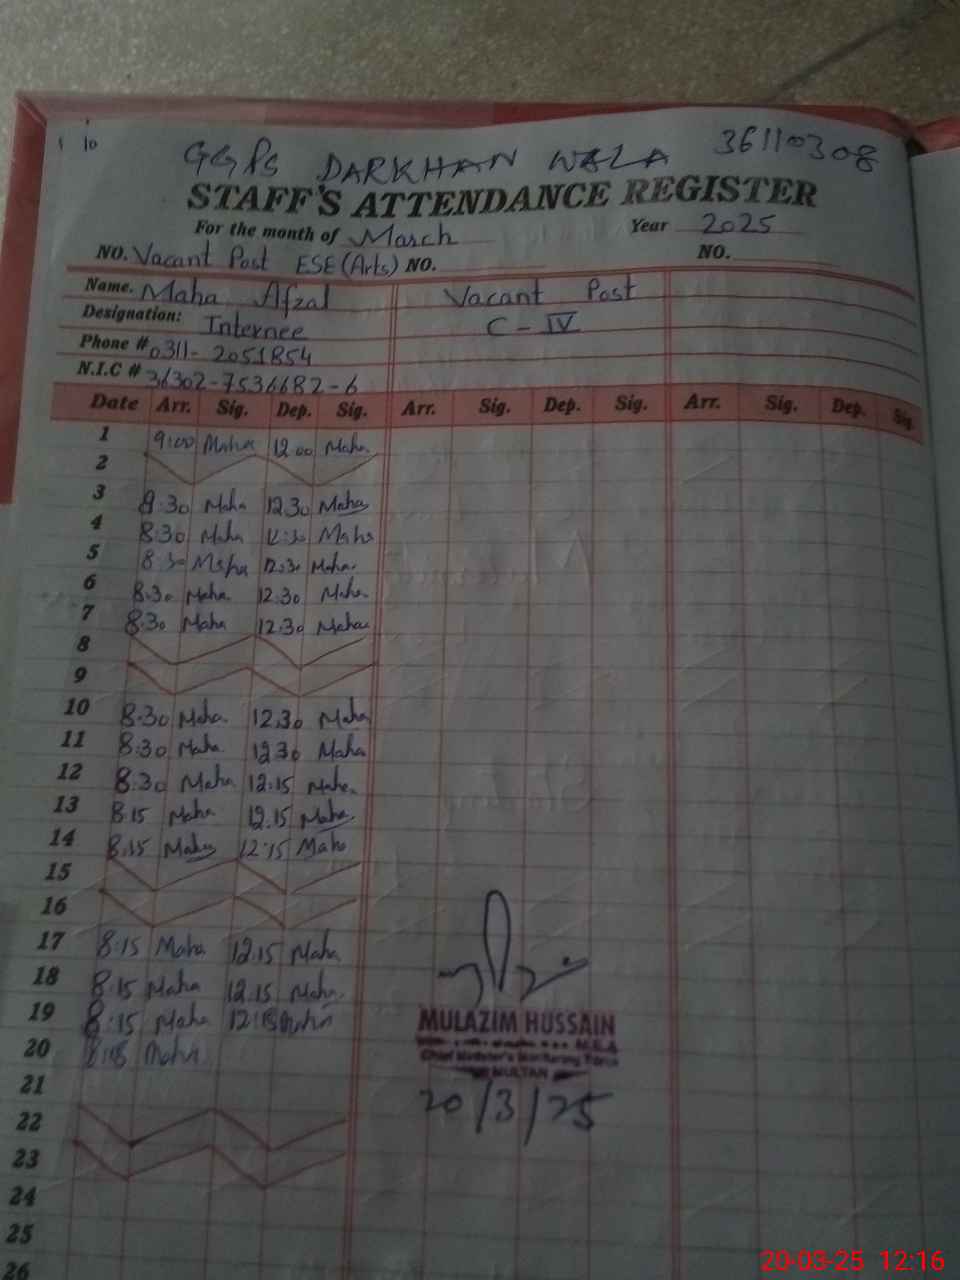 GGPS DARKHAN WALA 36110308
STAFF'S ATTENDANCE REGISTER
For the month of March Year 2025
NO. Vacant Post ESE (Arts) NO. NO.
Name. Maha Afzal Vacant Post
Designation: Internee C-IV
Phone # 0311-2051854
N.I.C # 36302-7536682-6
Date Arr. Sig. Dep. Sig. Arr. Sig. Dep. Sig. Arr. Sig. Dep. Sig.
1 9:00 Maha 12.00 Maha
2
3 8:30 Maha 12.30 Maha
4 8:30 Maha 12:30 Maha
5 8:30 Maha 12:30 Maha
6 8:30 Maha 12.30 Maha
7 8:30 Maha 12.30 Maha
8
9
10 8:30 Maha 12.30 Maha
11 8:30 Maha 12.30 Maha
12 8:30 Maha 12:15 Maha
13 8:15 Maha 12.15 Maha
14 8:15 Maha 12:15 Maha
15
16
17 8:15 Maha 12.15 Maha
18 8:15 Maha 12.15 Maha
19 8:15 Maha 12:15 Maha
20 8:15 Maha
MULAZIM HUSSAIN
M.E.A
Chief Minister's Monitoring Force
MULTAN
20/3/25
21
22
23
24
25
26
20-03-25 12:16